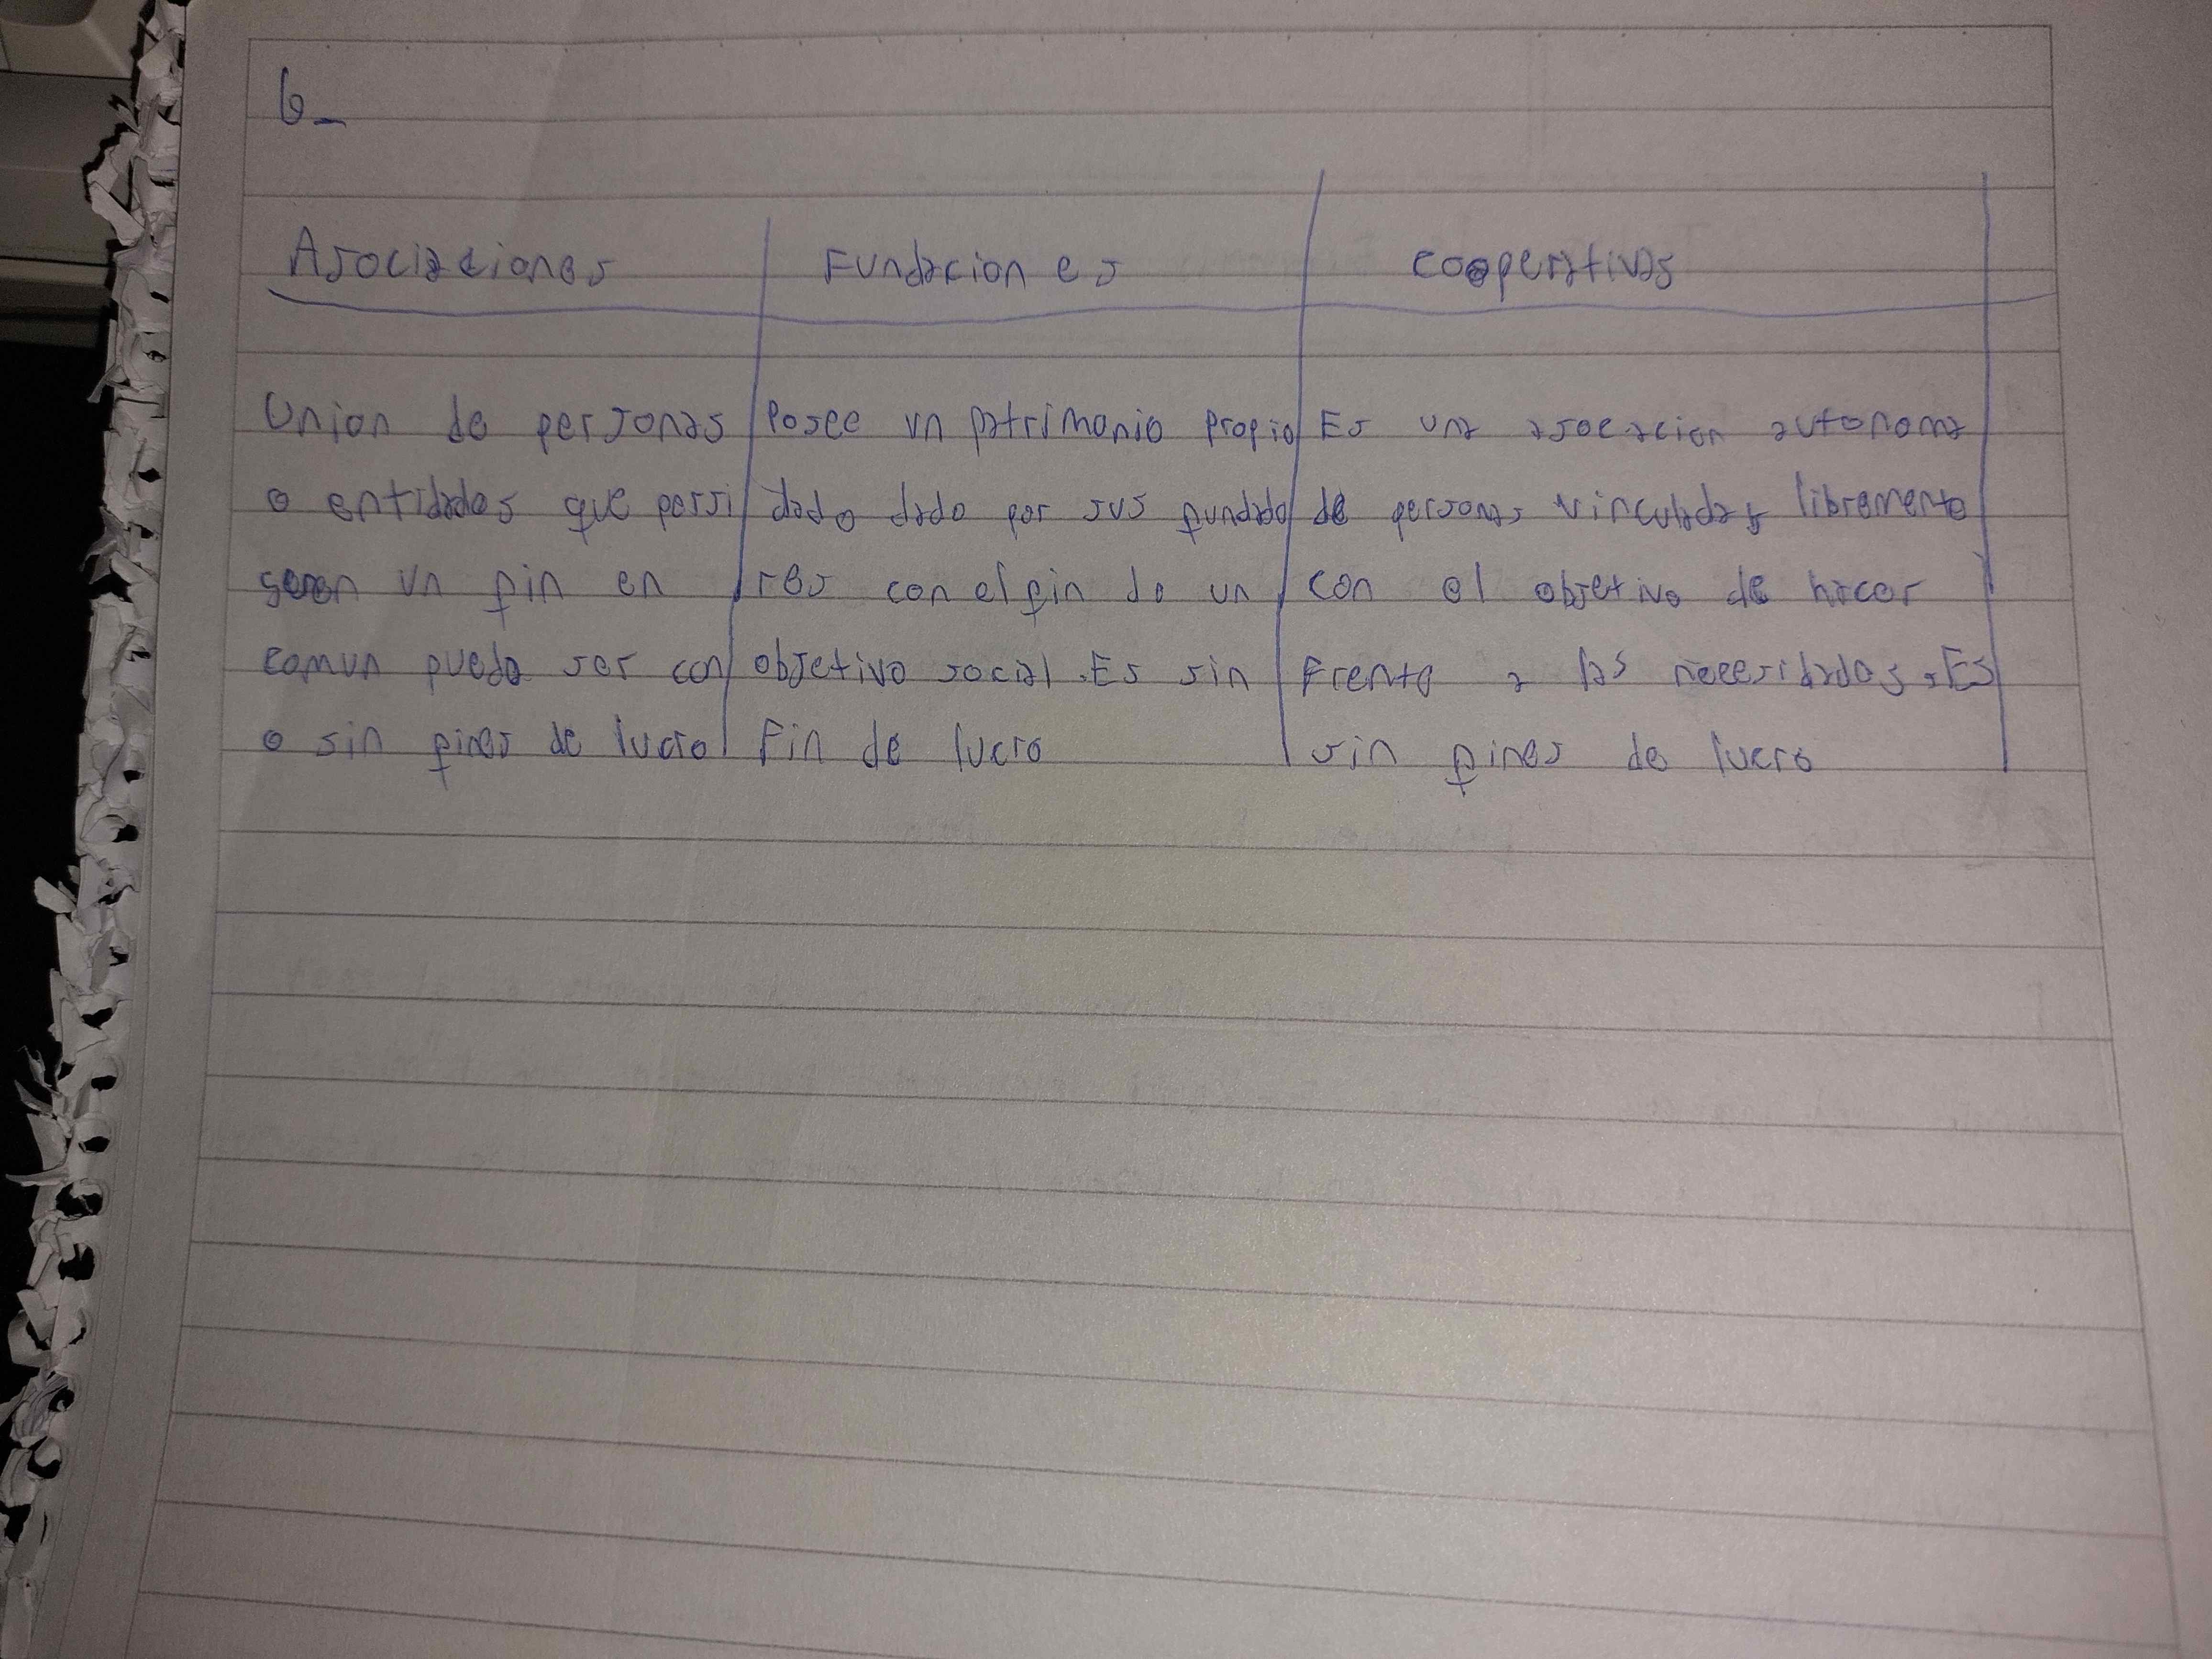 6_
Asociaciones
Union de personas
o entidades que persi
guen un fin en
comun puede ser con
o sin fines de lucro
Fundaciones
Posee un patrimonio propio
dado dado por sus fundado
res con el fin de un
objetivo social. Es sin
Fin de lucro
cooperativas
Es una asocacion autonoma
de personas vinculadas libremente
con el objetivo de hacer
Frente a las necesidades. Es
sin fines de lucro